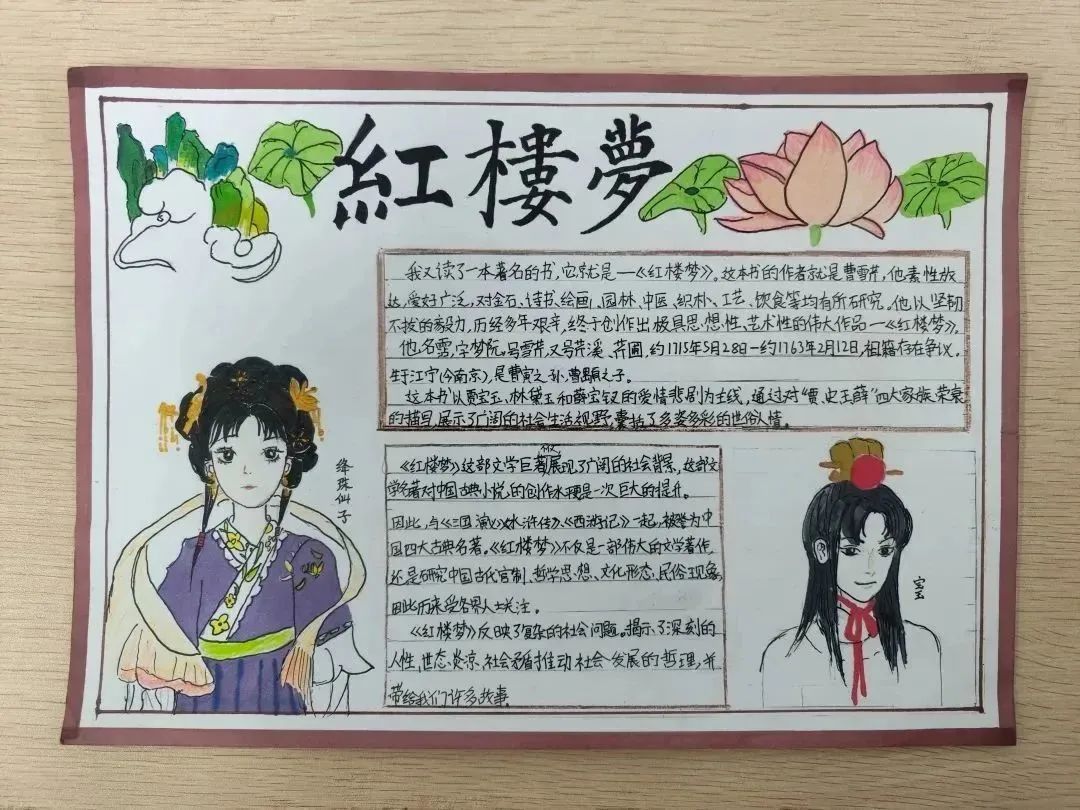 紅樓夢
我又读了一本著名的书,它就是—《红楼梦》。这本书的作者就是曹雪芹,他素性放
达,爱好广泛,对金石、诗书、绘画、园林、中医、织补、工艺、饮食等均有所研究。他以坚韧
不拔的毅力,历经多年艰辛,终于创作出极具思想性、艺术性的伟大作品—《红楼梦》。
他名霑,字梦阮,号雪芹,又号芹溪、芹圃,约1715年5月28日—约1763年2月12日,祖籍存在争议,
生于江宁(今南京),是曹寅之孙、曹颙之子。
这本书以贾宝玉、林黛玉和薛宝钗的爱情悲剧为主线,通过对“贾、史、王、薛”四大家族荣衰
的描写,展示了广阔的社会生活视野,囊括了多姿多彩的世俗人情。
《红楼梦》这部文学巨著展现了广阔的社会背景,这部文
学名著对中国古典小说的创作水平是一次巨大的提升。
因此,与《三国演义》《水浒传》、《西游记》一起,被誉为中
国四大古典名著。《红楼梦》不仅是一部伟大的文学著作,
还是研究中国古代官制、哲学思想、文化形态、民俗现象,
因此历来受各界人士关注。
《红楼梦》反映了复杂的社会问题。揭示了深刻的
人性、世态炎凉、社会矛盾推动社会发展的哲理,并
带给我们许多故事。
绛珠仙子
宝玉